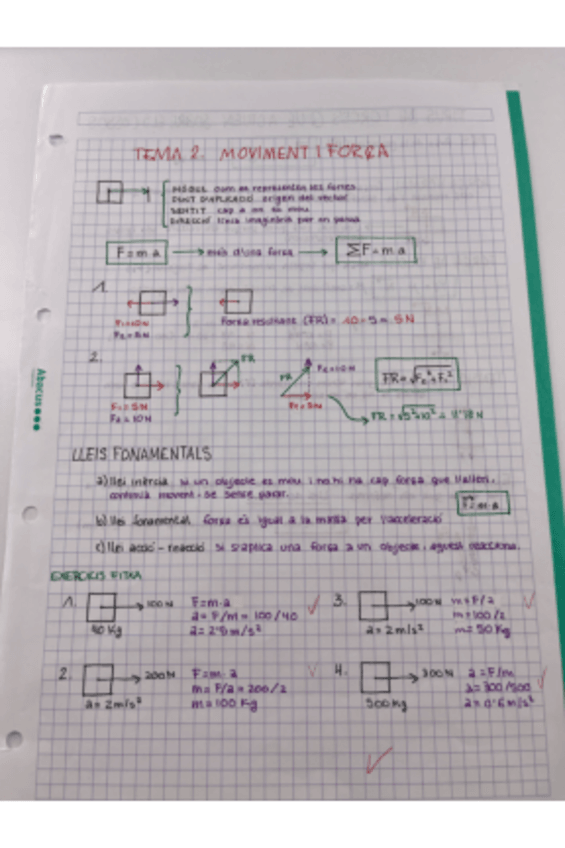 TEMA 2. MOVIMENT I FORÇA
MÒDUL com es representen les forces
PUNT D'APLICACIÓ origen del vector
SENTIT cap a on es mou
DIRECCIÓ línia imaginària per on passa
F=m·a → més d'una força → ΣF=m·a
1.
F1=10N
F2=5N
Força resultant (FR)= 10-5= 5N
2.
F1=5N
F2=10N
FR
FR
F2=10N
F1=5N
FR=√F1²+F2²
FR=√5²+10² = 11'18 N
LLEIS FONAMENTALS
a) llei inèrcia, si un objecte es mou i no hi ha cap força que l'alteri,
continuà movent-se sense parar.
b) llei fonamental, força és igual a la massa per l'acceleració
F=m·a
c) llei acció-reacció si s'aplica una força a un objecte, aquest reacciona.
EXERCICIS FITXA
1.
100N
40 Kg
F=m·a
a= F/m = 100/40
a= 2'5 m/s²
3.
100N
a=2m/s²
m=F/a
m=100/2
m= 50 Kg
2.
200N
a=2m/s²
F=m·a
m= F/a = 200/2
m=100 Kg
4.
300N
500 Kg
a=F/m
a=300/500
a= 0'6 m/s²
Abacus